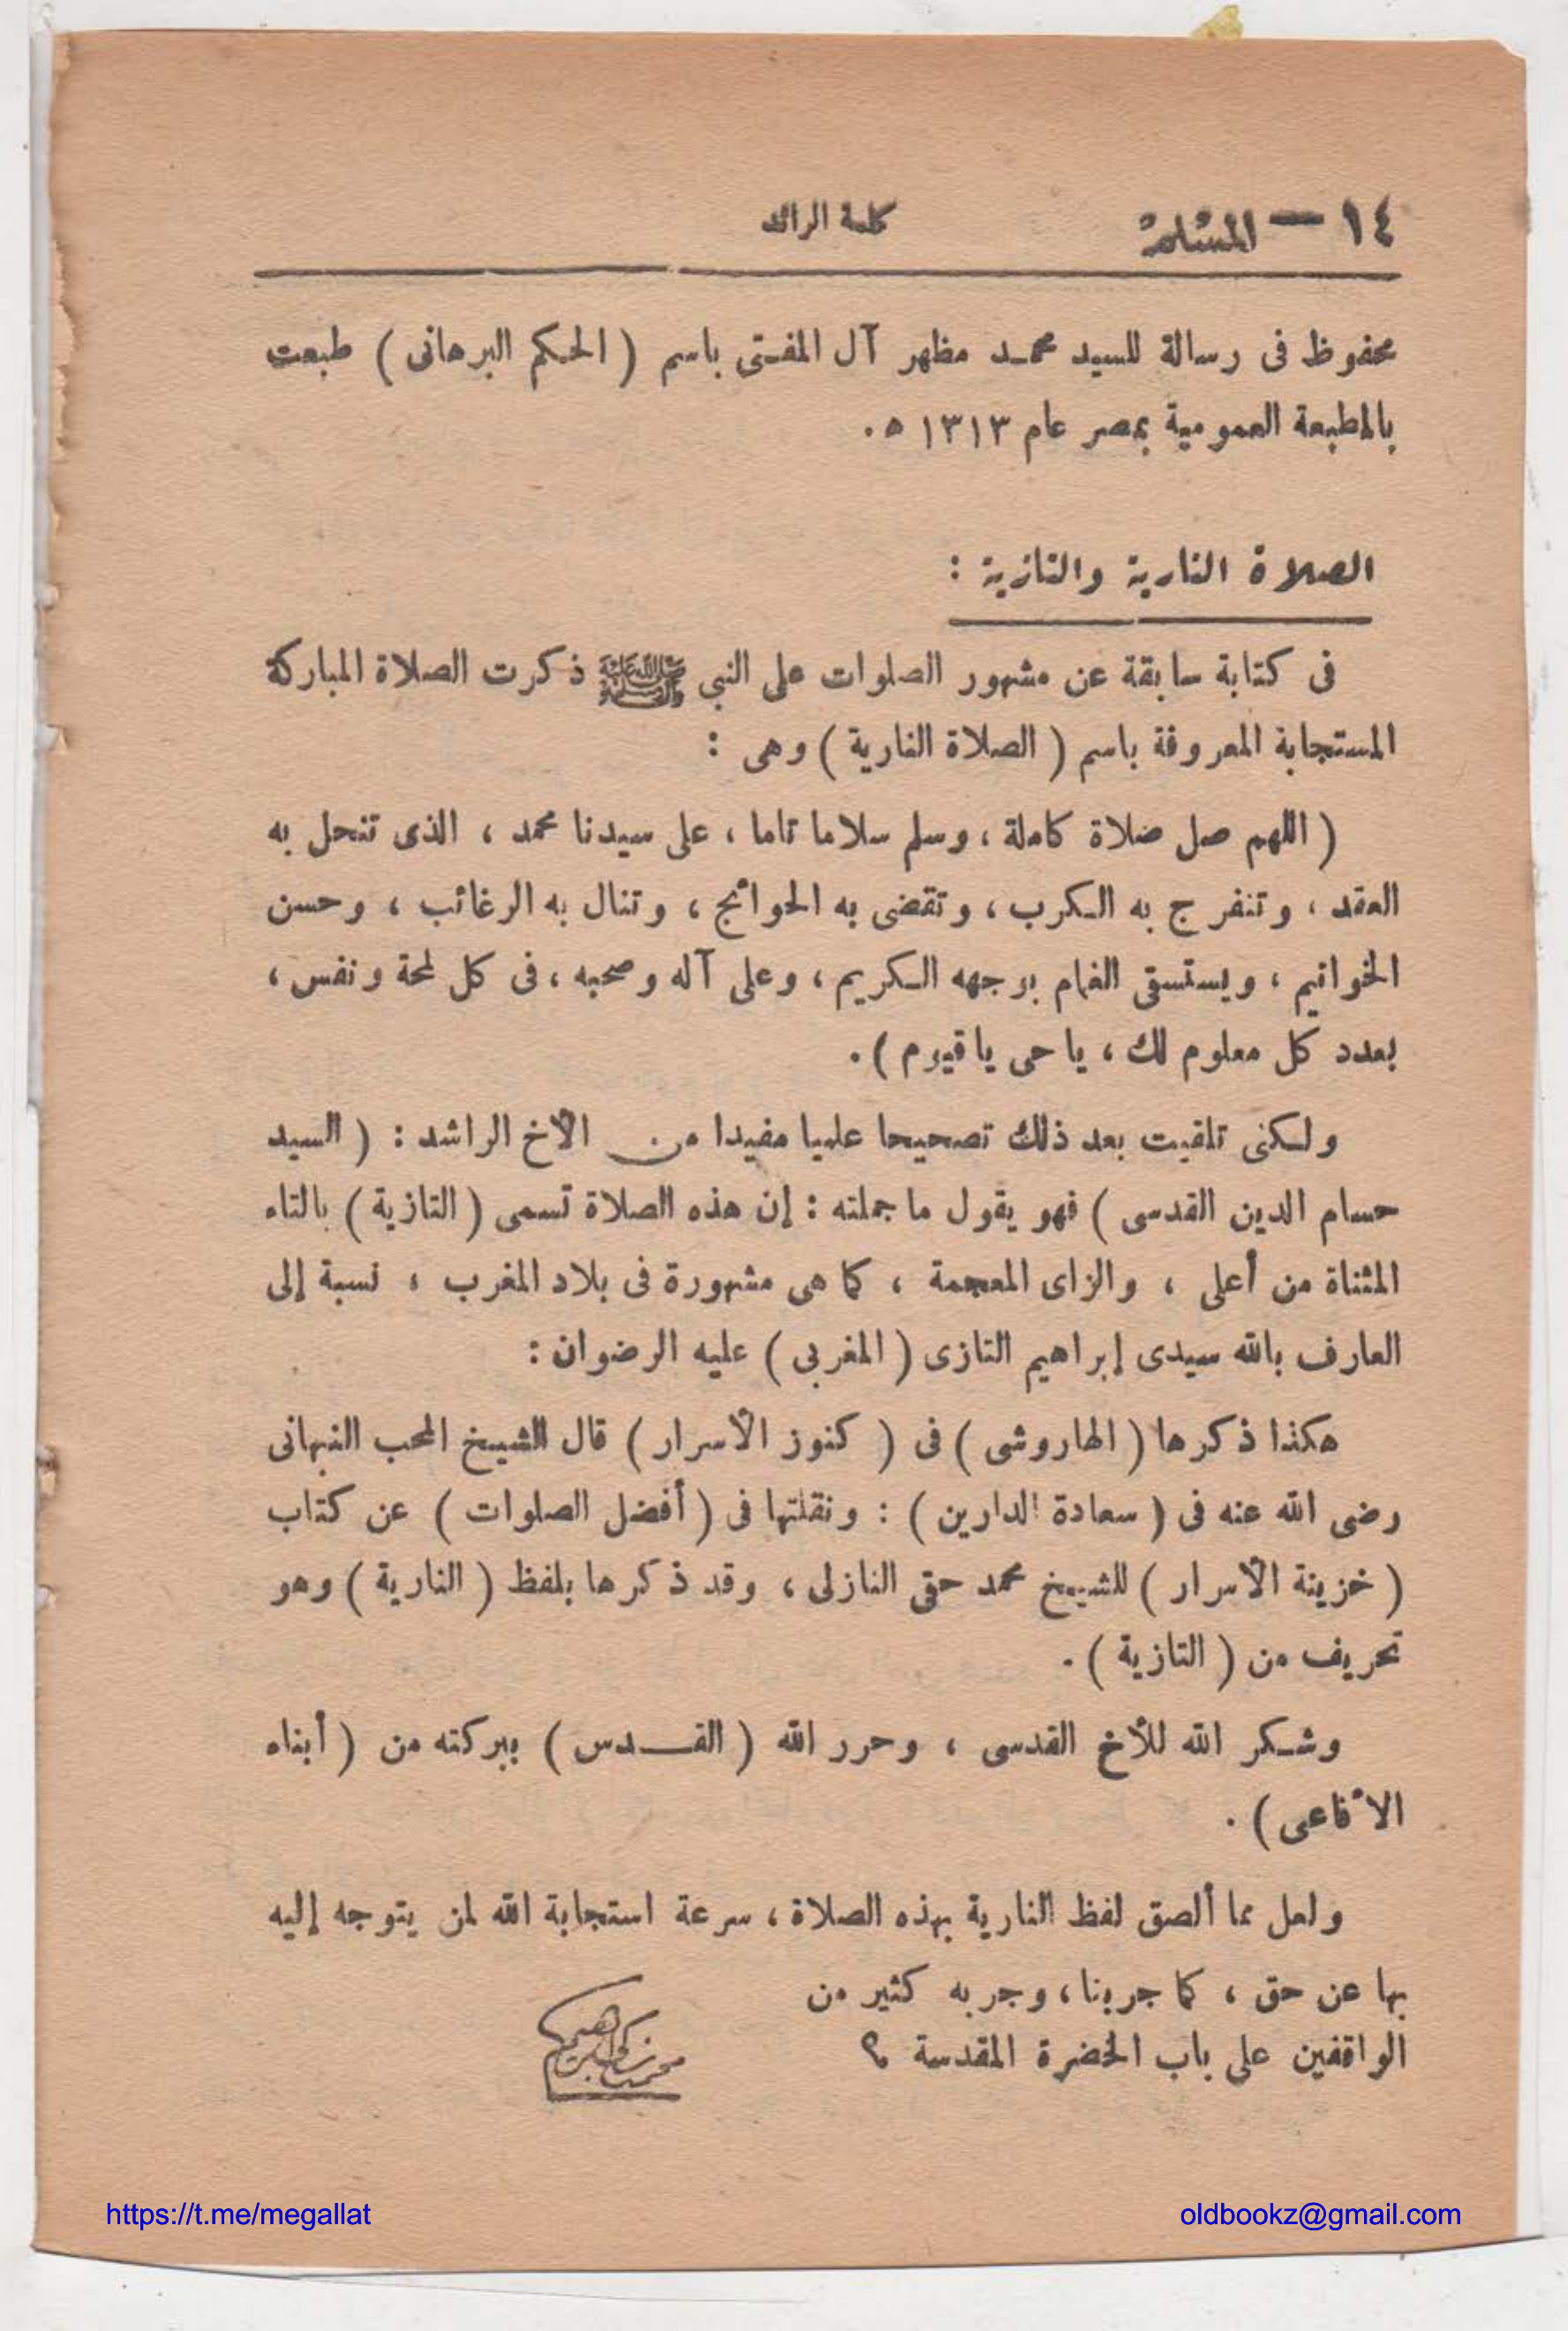 ١٤ — المسلم
كلمة الرائد
محفوظ فى رسالة للسيد محمد مظهر آل المفتى باسم ( الحكم البرهانى ) طبعت
بالمطبعة العمومية بمصر عام ١٣١٣ ه .
الصلاة النارية والتازية :
فى كتابة سابقة عن مشهور الصلوات على النبي ﷺ ذكرت الصلاة المباركة
المستجابة المعروفة باسم ( الصلاة النارية ) وهى :
( اللهم صل صلاة كاملة ، وسلم سلاما تاما ، على سيدنا محمد ، الذى تنحل به
العقد ، وتنفرج به الكرب ، وتقضى به الحوائج ، وتنال به الرغائب ، وحسن
الخواتيم ، ويستسقى الغمام بوجهه الكريم ، وعلى آله وصحبه ، فى كل لمحة ونفس ،
بعدد كل معلوم لك ، يا حى يا قيوم ) .
ولكنى تلقيت بعد ذلك تصحيحا علميا مفيدا من الأخ الراشد : ( السيد
حسام الدين القدسى ) فهو يقول ما جملته : إن هذه الصلاة تسمى ( التازية ) بالتاء
المثناة من أعلى ، والزاى المعجمة ، كما هى مشهورة فى بلاد المغرب ، نسبة إلى
العارف بالله سيدى إبراهيم التازى ( المغربى ) عليه الرضوان :
هكذا ذكرها ( الهاروشى ) فى ( كنوز الأسرار ) قال الشيخ المحب النبهانى
رضى الله عنه فى ( سعادة الدارين ) : ونقلتها فى ( أفضل الصلوات ) عن كتاب
( خزينة الأسرار ) للشيخ محمد حقى النازلى ، وقد ذكرها بلفظ ( النارية ) وهو
تحريف من ( التازية ) .
وشكر الله للأخ القدسى ، وحرر الله ( القدس ) ببركته من ( أبناء
الأفاعى ) .
ولعل مما ألصق لفظ النارية بهذه الصلاة ، سرعة استجابة الله لمن يتوجه إليه
بها عن حق ، كما جربنا ، وجربه كثير من
الواقفين على باب الحضرة المقدسة
محمد زكى إبراهيم
https://t.me/megallat
oldbookz@gmail.com